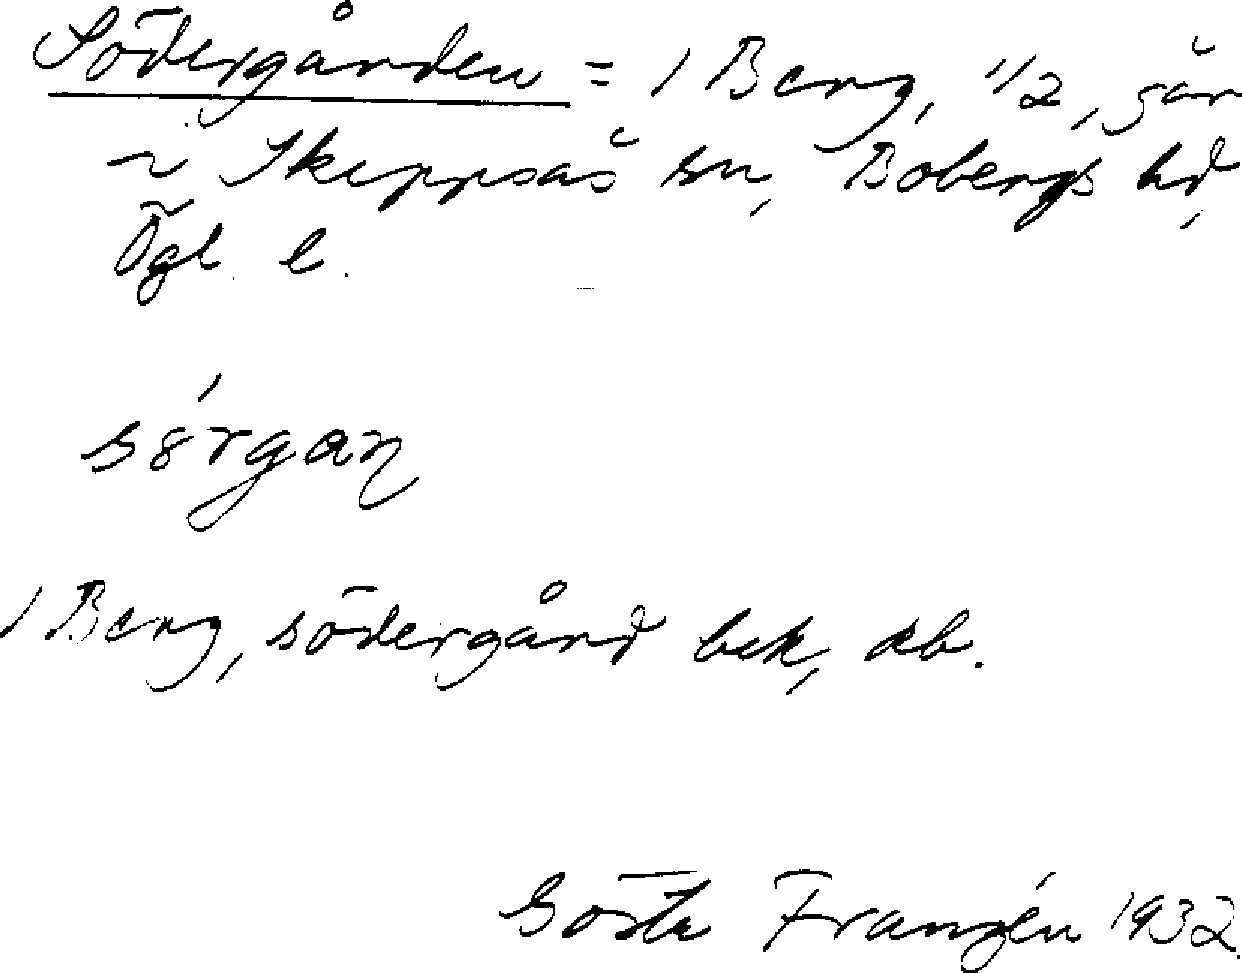 Södergården = 1 Berg, 1/2, går
i Skeppsås sn, Bobergs hd,
Ögl. l.
sörgaɳ
1 Berg, södergård bek,
Gösta Franzén 1932.